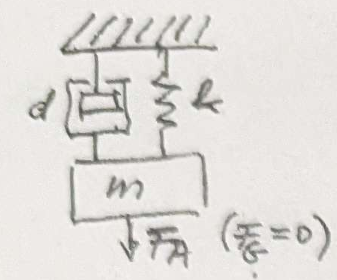 d
k
m
F_A (F_G = 0)